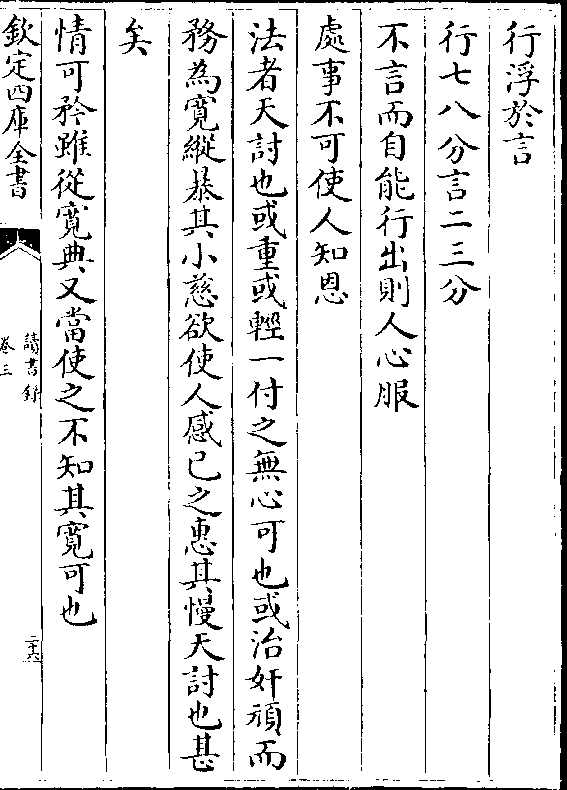 行浮於言
行七八分言二三分
不言而自能行出則人心服
處事不可使人知恩
法者天討也或重或輕一付之無心可也或治奸頑而
務為寛縱暴其小慈欲使人感已之惠其慢天討也甚
矣
情可矜雖從寛典又當使之不知其寛可也
欽定四庫全書
讀書錄
卷三
二十六